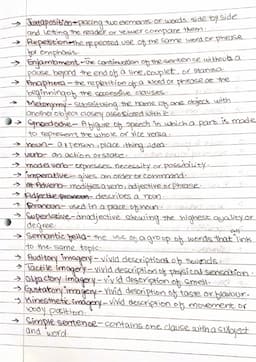 → Juxtaposition - placing two elements or words side by side
and letting the reader or viewer compare them.
→ Repetition - the repeated use of the same word or phrase
for emphasis
→ Enjambment - the continuation of the sentence without a
pause beyond the end of a line, couplet, or stanza.
→ Anaphora - the repetition of a word or phrase at the
beginning of the successive clauses
→ Metonymy - substituting the name of one object with
another object closely associated with it
→ Synecdoche - A figure of speech in which a part is made
to represent the whole or vice versa.
→ noun - a person, place, thing, idea
→ verb - an action or state.
→ modal verb - expresses necessity or possibility
→ imperative - gives an order or command.
→ Adverb - modifies a verb, adjective or phrase.
→ Adjective - describes a noun
→ Pronoun - used in place of noun.
→ Superlative - an adjective showing the highest quality or
degree
→ Semantic field - the use of a group of words that link
to the same topic.
→ Auditory imagery - vivid descriptions of sounds.
→ Tactile imagery - vivid description of physical sensation.
→ Olfactory imagery - vivid description of smell.
→ Gustatory imagery - vivid description of taste or flavour.
→ Kinesthetic imagery - vivid description of movement or
body position
→ Simple sentence - contains one clause with a subject
and word